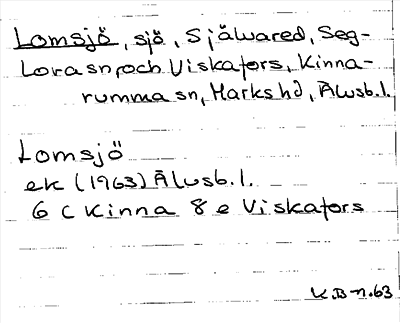 Lomsjö, sjö, Självared, Seg-
lora sn, och Viskafors, Kinna-
rumma sn, Marks hd, Älvsb.l.
Lomsjö
ek (1963) Älvsb.l.
6 c Kinna 8 e Viskafors
K.B-n.63